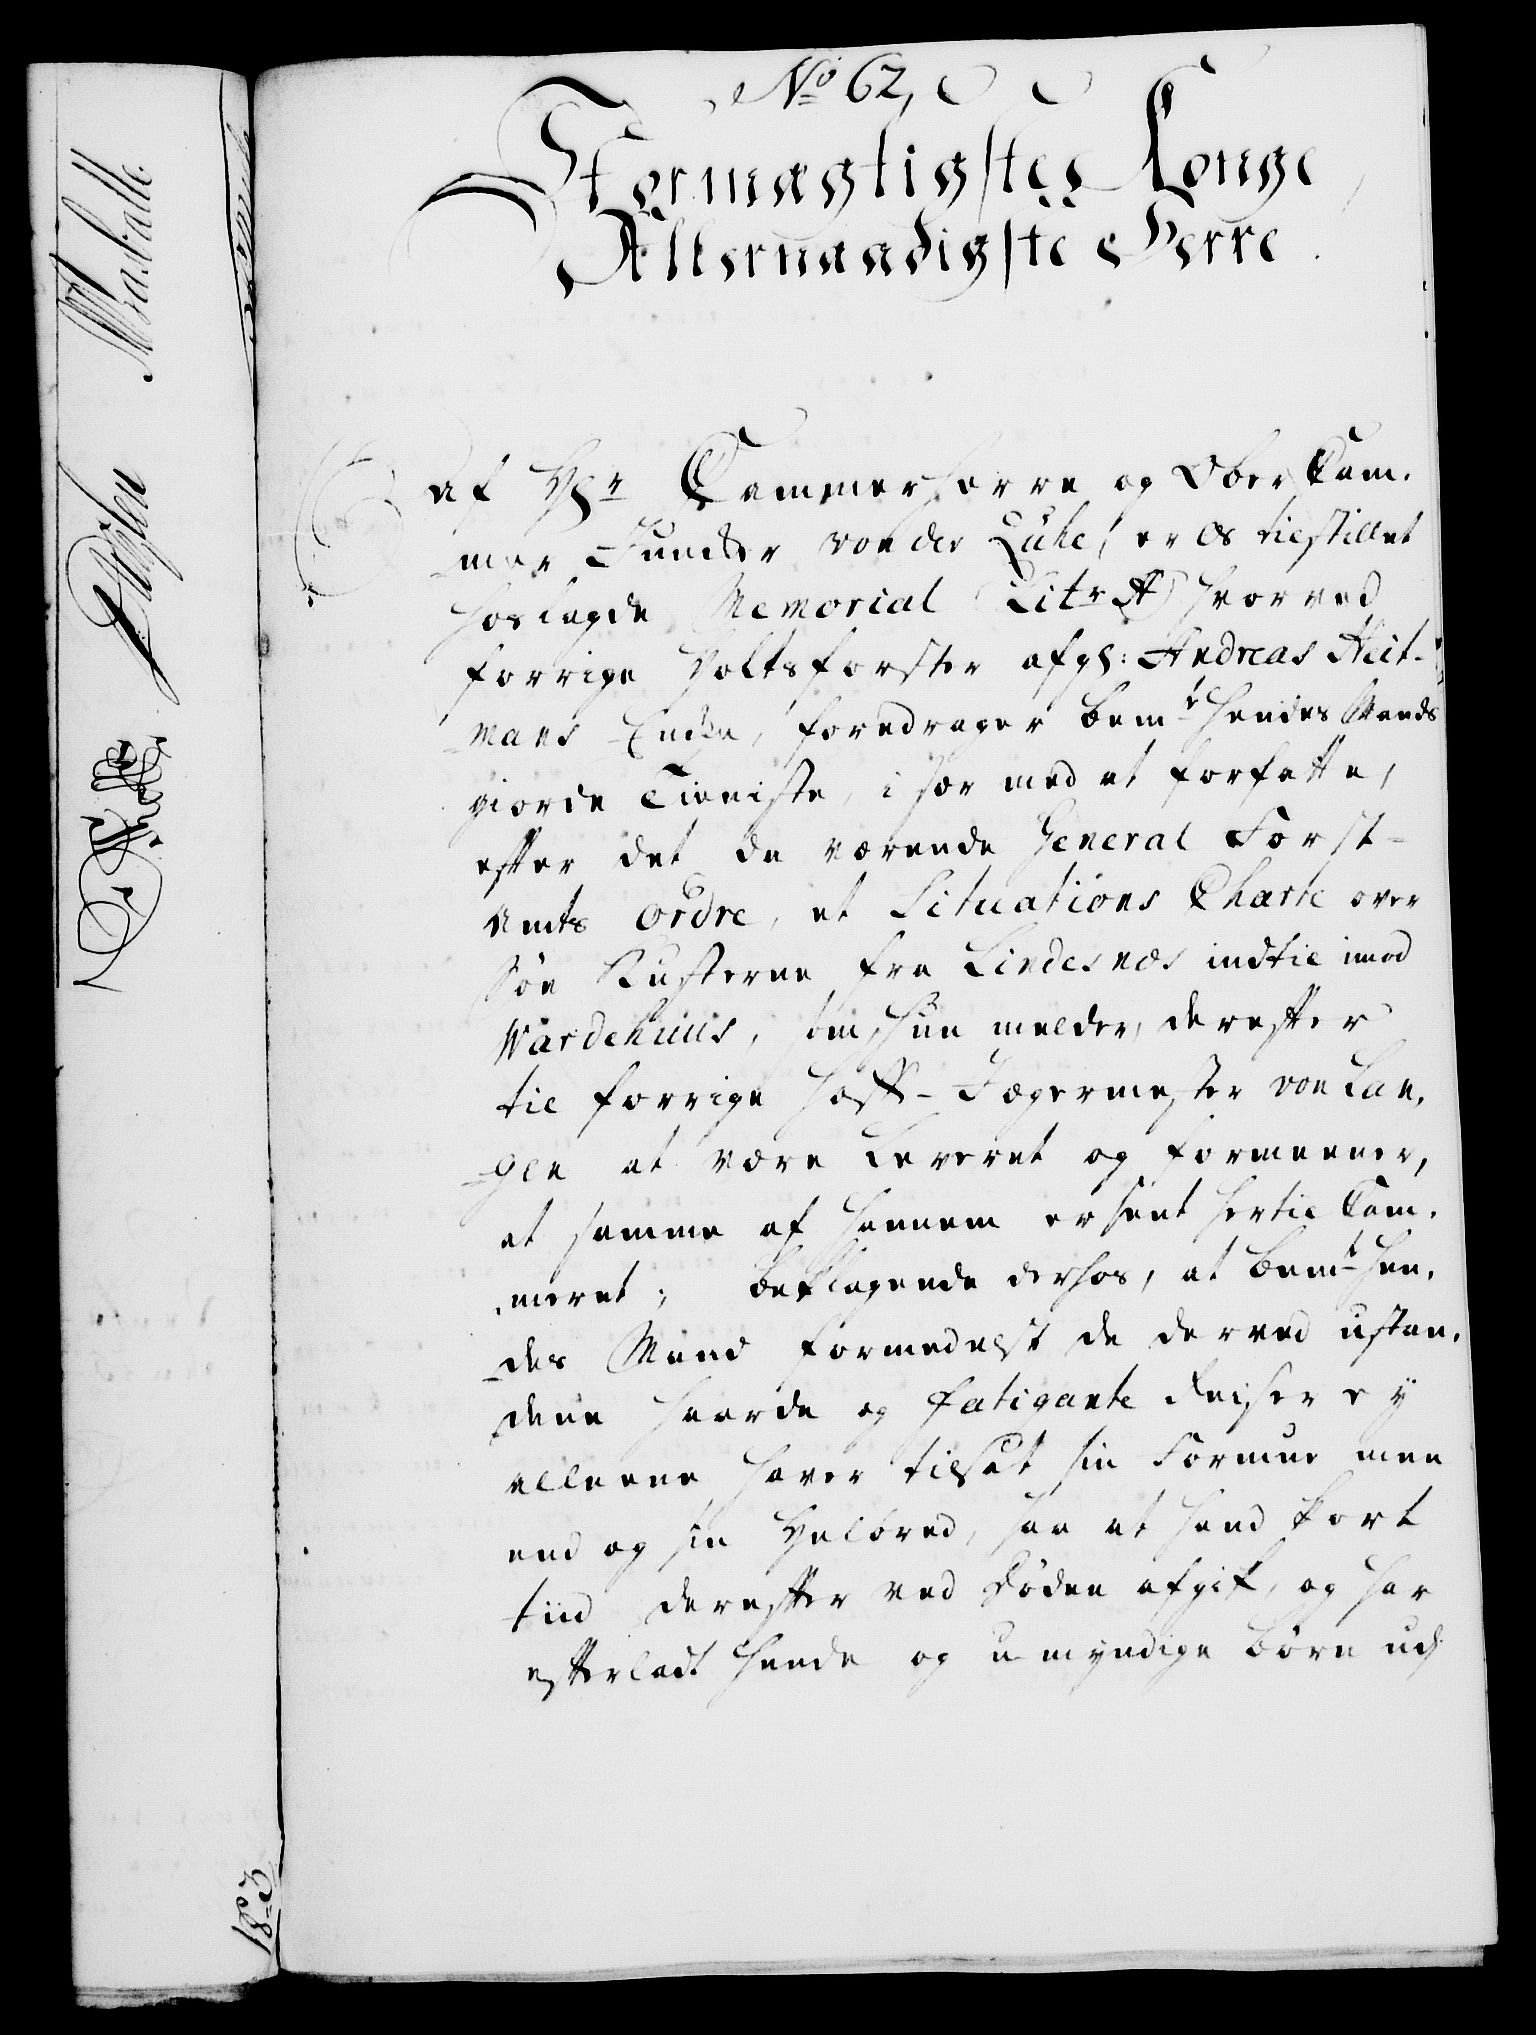 No 62,
Stormægtigste Konge
Allernaadigste Herre.
Af Hr Cammerherre og Ober Cam-
mer Juncker von der Lühe, er os tilstillet
hoslagde Memorial Litr A hvorved
forrige Holtsforster afg: Andreas Heit-
mans Encke, foredrager bemte hendes Mands
giorde Tieniste, i sær med at forfatte,
efter det da værende General Forst-
Amts Ordre, et Situations Charte over
Søe Kusterne fra Lindesnæs indtil imod
Wardehuus, som hun melder, derefter
til forrige Hoff-Jægermester von Lan-
gen at være leveret og formeener,
at samme af hannem er sent hertil Cam-
meret; beklagende derhos, at bemte hen-
des Mand formedelst de derved udstan-
dene haarde og fatigante Reiser ey
alleene haver tilsat sin Formue men
end og sin Helbred, saa at hand kort
tiid derefter ved Døden afgik, og har
efterladt hende og umyndige børn udj